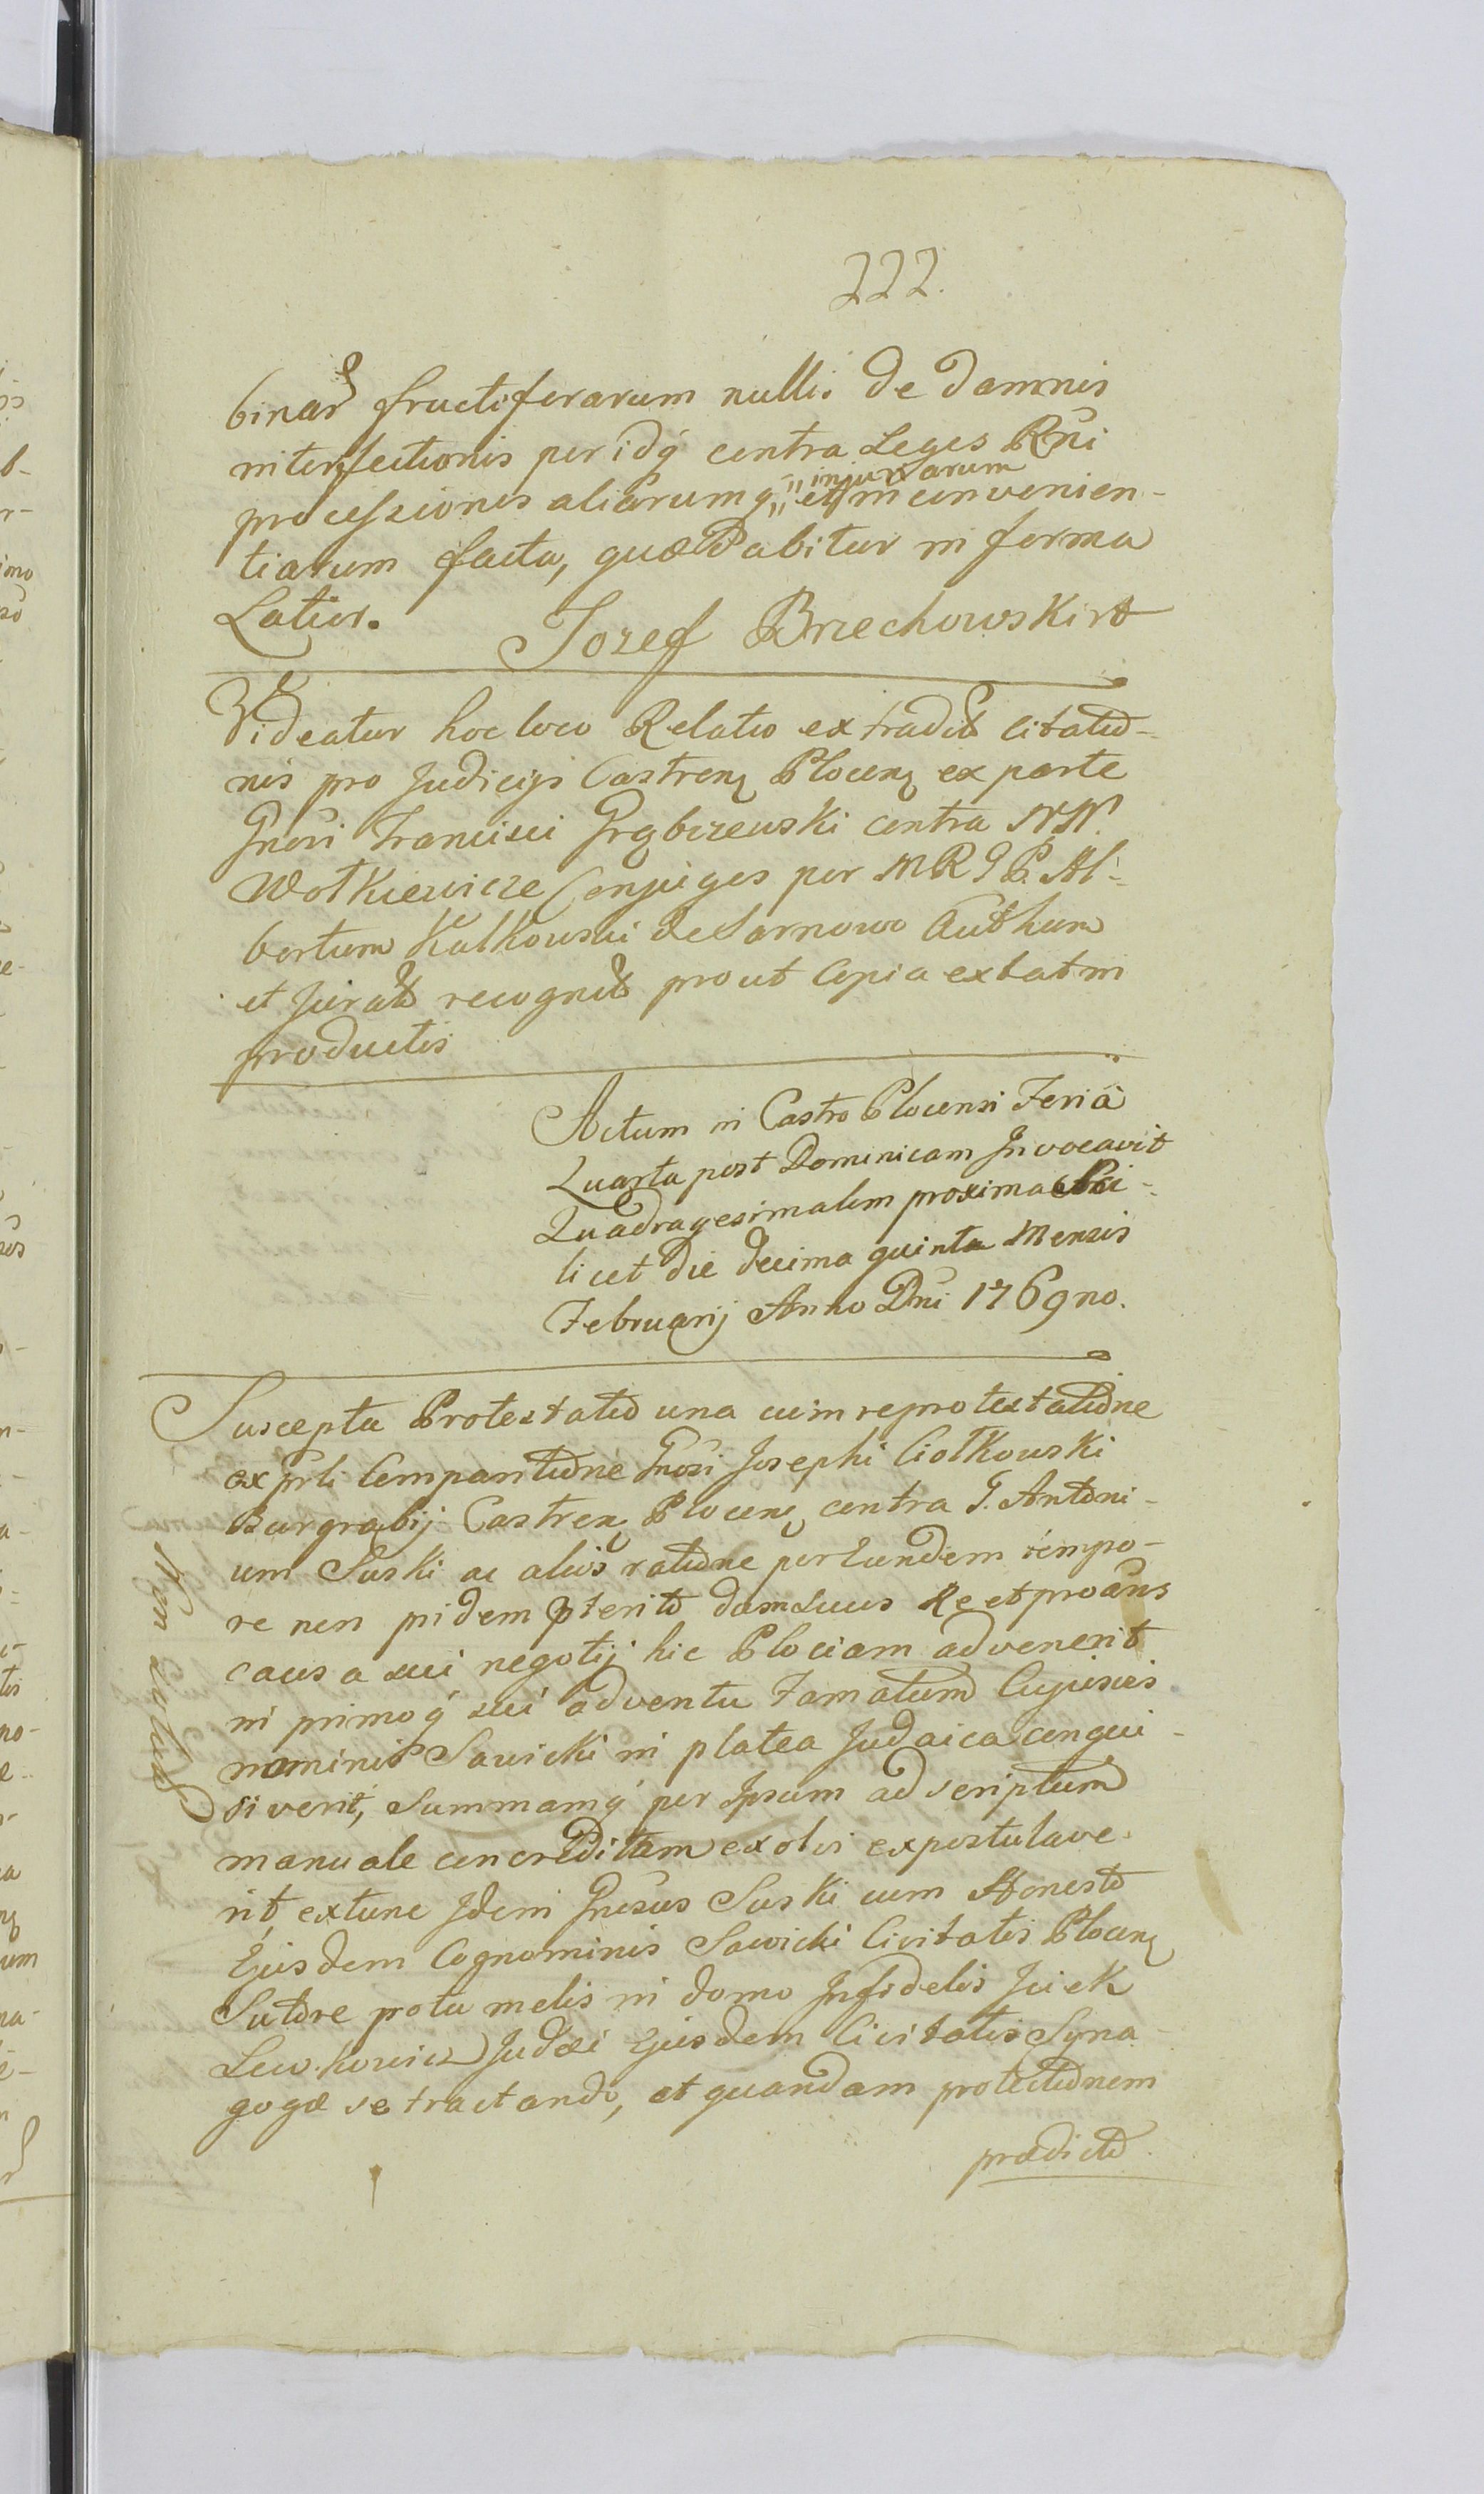 222.
binar fructiferarum nulli de damnis
interfectionis per idq contra Leges Rni
injuriarum
processionis aliarumq et inconvenien-
tiarum facta, quæ dabitur in forma
Latior. Jozef Brzechowski
Videatur hoc loco Relatio extradit Citatio-
nis pro Judicijs Castren Plocen ex parte
Gnosi Francisci Grąbczewski contra NN.
Wołkiewicze Conjuges per MRGP. Al-
bertum Kulkowski de Sarnowo Authum
et Jurat recognit prout Copia extat in
productis
Actum in Castro Plocensi Feria
Quarta post Dominicam Invocavit
Quadragesimalem proxima Sci-
licet die decima quinta Mensis
Februarij Anno Dni 1769no.
Suscepta Protestatio una cum reprotestatione
ex prli Comparitione Gnosi Josephi Ciołkowski
Burgrabij Castren Plocen contra G. Antoni-
um Suski ac alios ratione per Eundem tempo-
re non pridem pterito dum suus Re et pro
causa sui negotij hic Plociam advenerit
in primoq sui adventu Famatum Cujusvis
nominis Sawicki in platea Judaica conqui-
siverit, Summamq per Ipsum ad scriptum
manuale concreditam exolvi expostulave-
rit, extunc Idem Gnosus Suski cum Honesto
Ejusdem Cognominis Sawicki Civitatis Plocen
Sutore potu melis in domo Infidelis Jciek
Lewkowicz Judæi Ejusdem Civitatis Syna-
gogæ se tractando, et quandam protectionem
prædicto